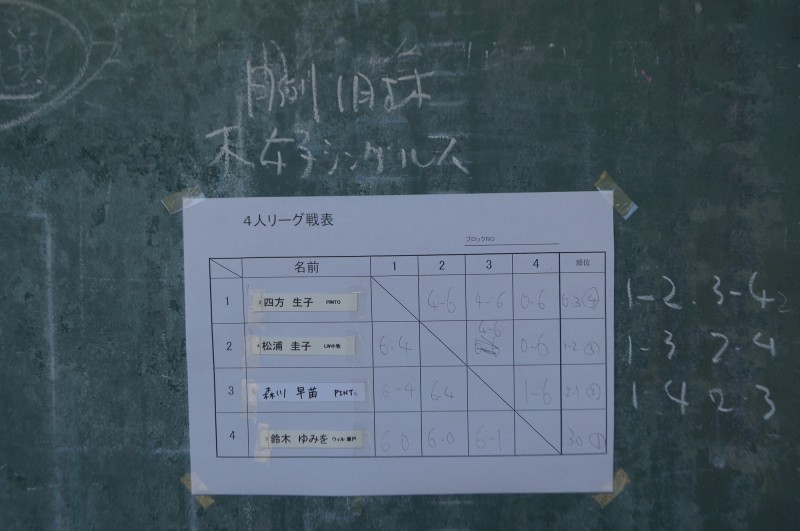 女子シングルス
4人リーグ戦表
ブロックNO
名前 1 2 3 4 順位
1 四方 生子 PINTO 4-6 4-6 0-6 0-3 ④
2 松浦 圭子 LW小牧 6-4 4-6 0-6 1-2 ③
3 森川 早苗 PINTO 6-4 6-4 1-6 2-1 ②
4 鈴木 ゆみを ウィル・瀬戸 6-0 6-0 6-1 3-0 ①
1-2. 3-4
1-3 2-4
1-4 2-3